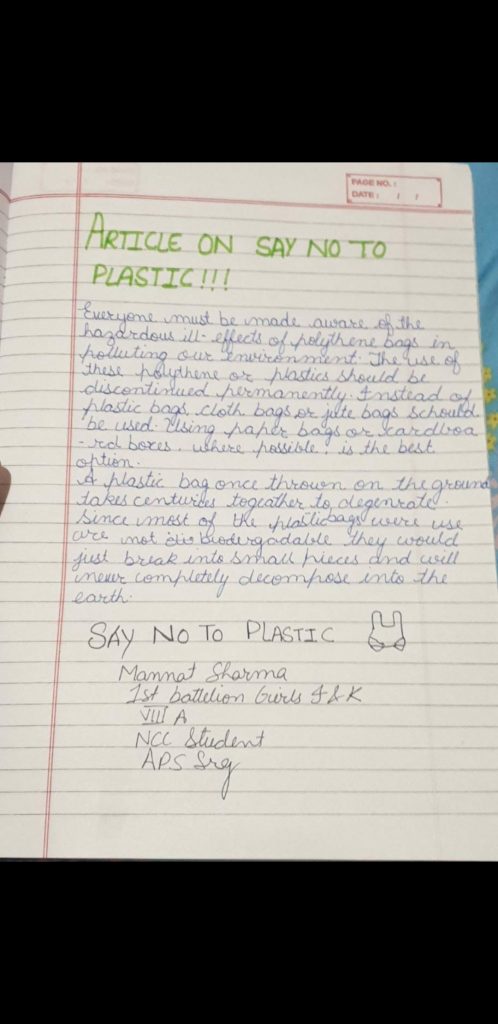 PAGE NO.:
DATE: / /
ARTICLE ON SAY NO TO
PLASTIC!!!
Everyone must be made aware of the
hazardous ill-effects of polythene bags in
polluting our environment. The use of
these polythene or plastics should be
discontinued permanently. Instead of
plastic bags, cloth bags or jute bags schould
be used. Using paper bags or cardboa
-rd boxes, where possible, is the best
option.
A plastic bag once thrown on the ground
takes centuries togeather to degenrate.
Since most of the plastic bags were use
are not biodergadable they would
just break into small pieces and will
never completely decompose into the
earth.
SAY NO TO PLASTIC
Mannat Sharma
1st battelion Girls J&K
VIII A
NCC Student
APS Srg